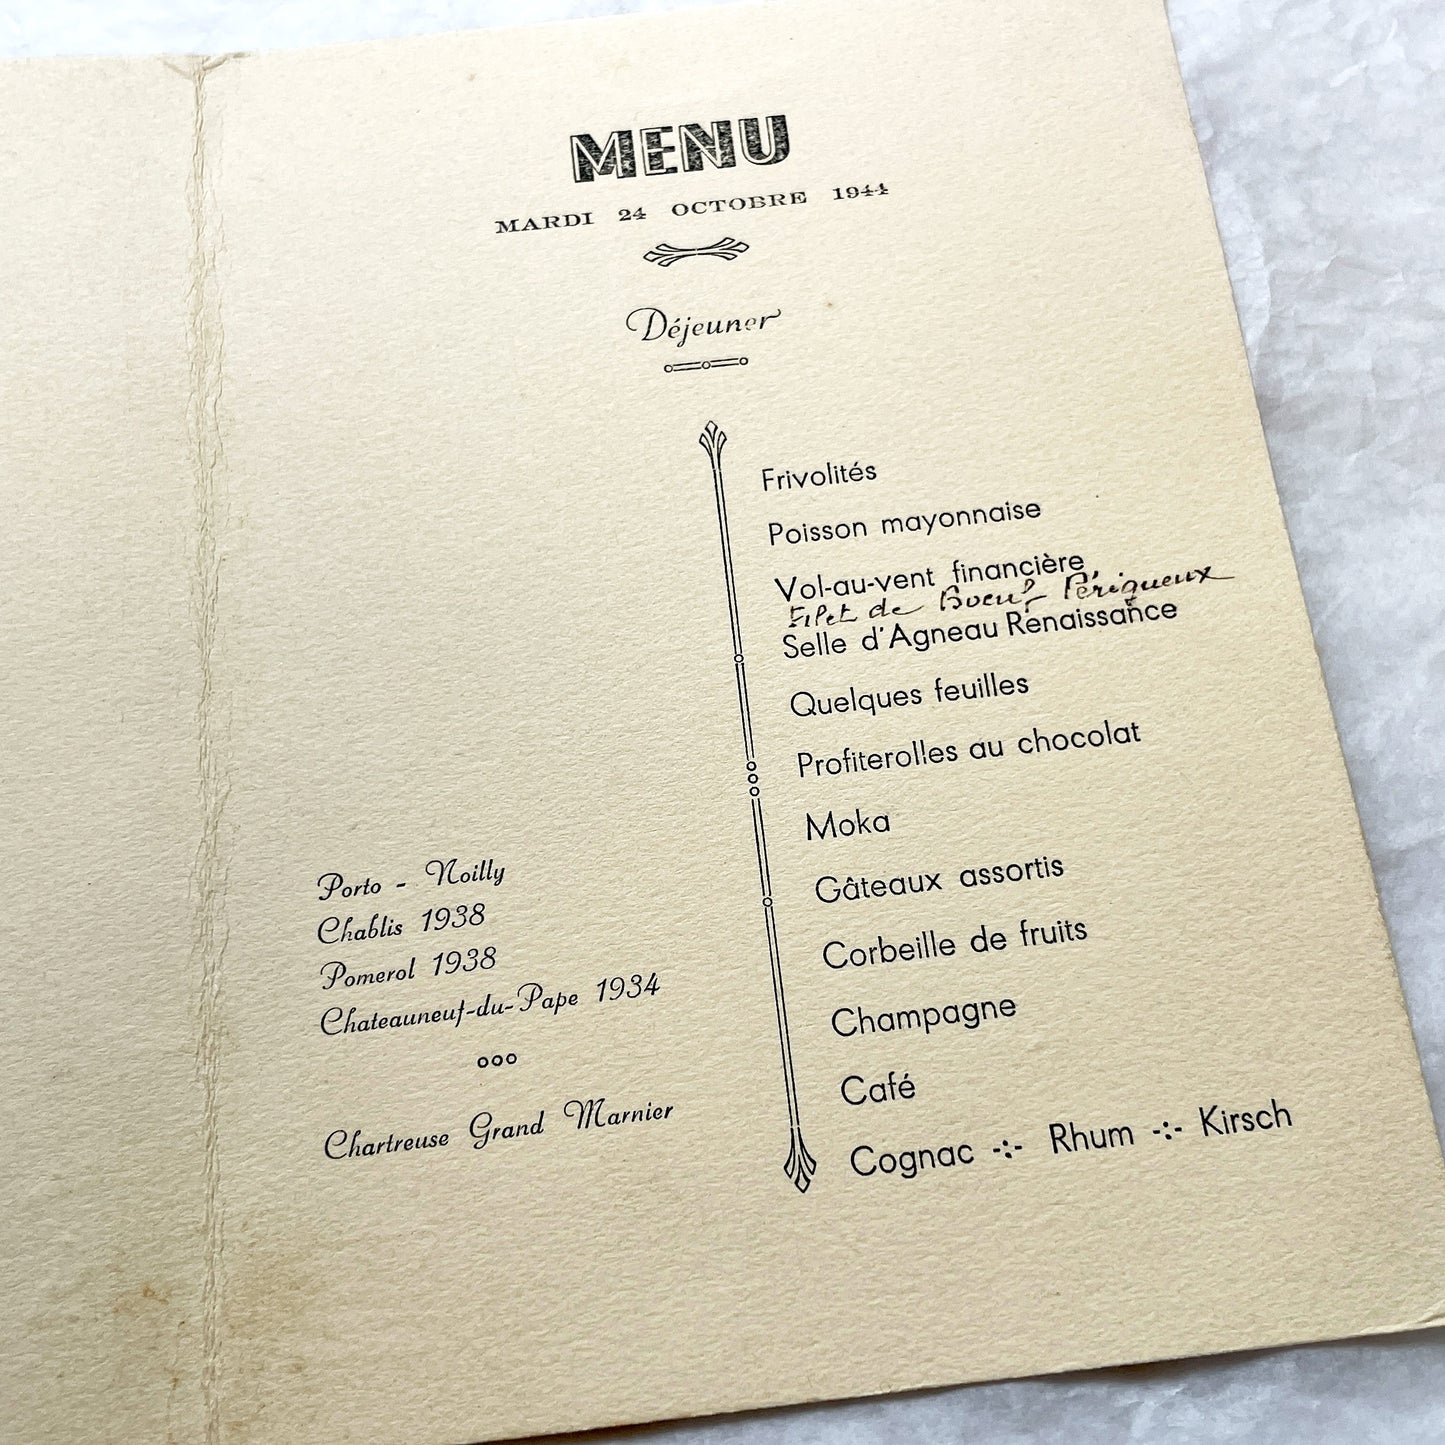 MENU
MARDI 24 OCTOBRE 1944
Déjeuner
Frivolités
Poisson mayonnaise
Vol-au-vent financière
Filet de Boeuf Périgueux
Selle d'Agneau Renaissance
Quelques feuilles
Profiterolles au chocolat
Moka
Gâteaux assortis
Corbeille de fruits
Champagne
Café
Cognac -:- Rhum -:- Kirsch
Porto - Noilly
Chablis 1938
Pomerol 1938
Chateauneuf-du-Pape 1934
ooo
Chartreuse Grand Marnier